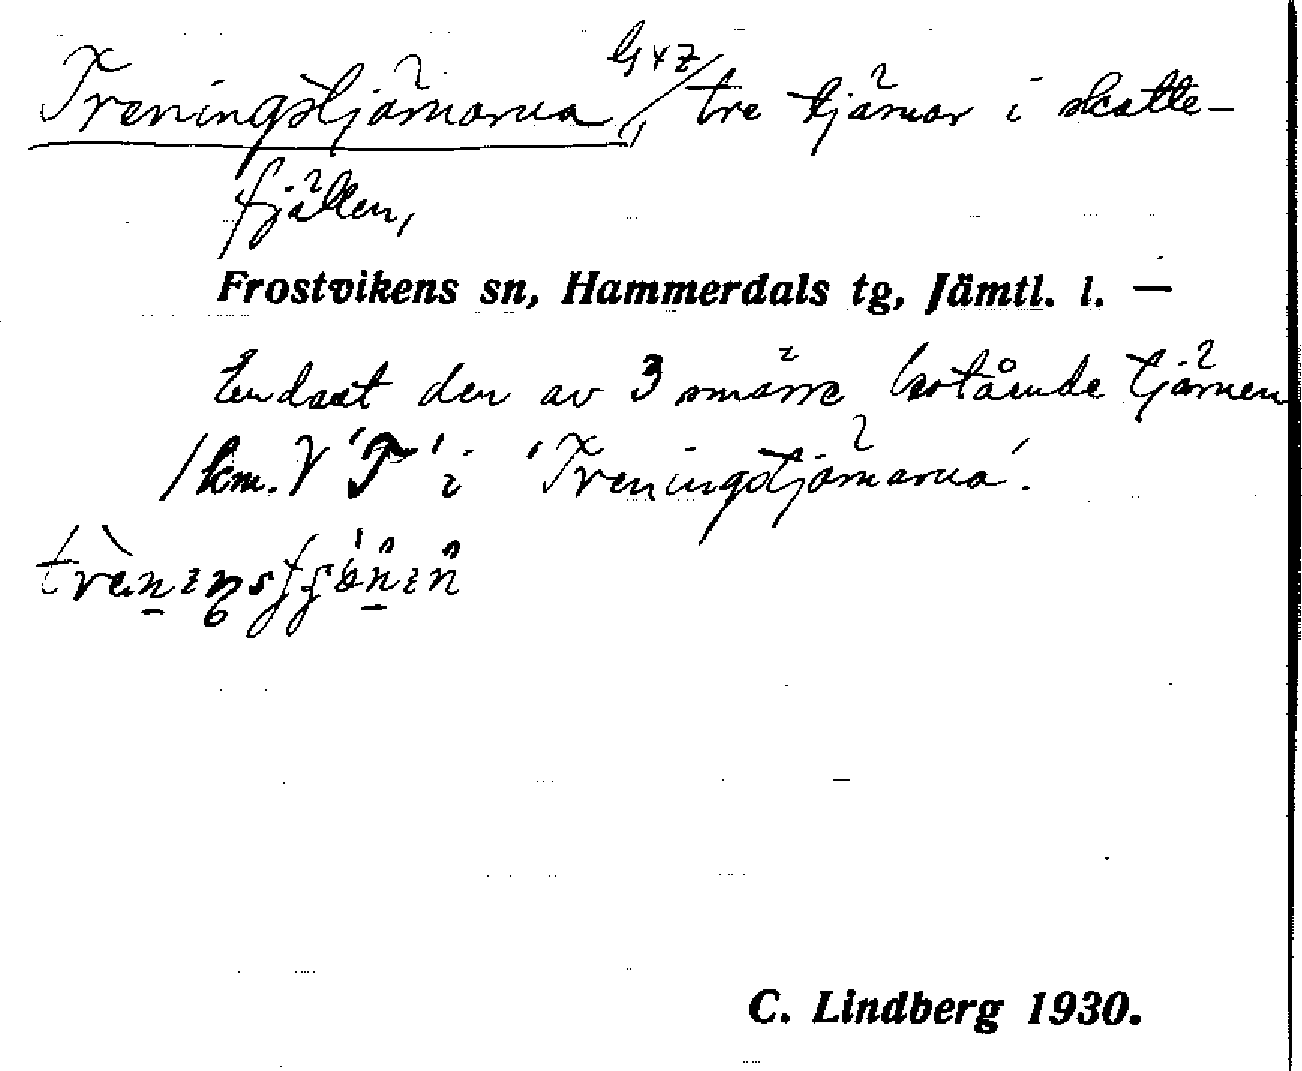 Treningstjärnarna G4Z/ tre tjärnar i skatte-
fjällen,
Frostvikens sn, Hammerdals tg, Jämtl. l. —
Endast den av 3 smärre bestående tjärnen
1 km. V 'T' i 'Treningstjärnarna'.
C. Lindberg 1930.